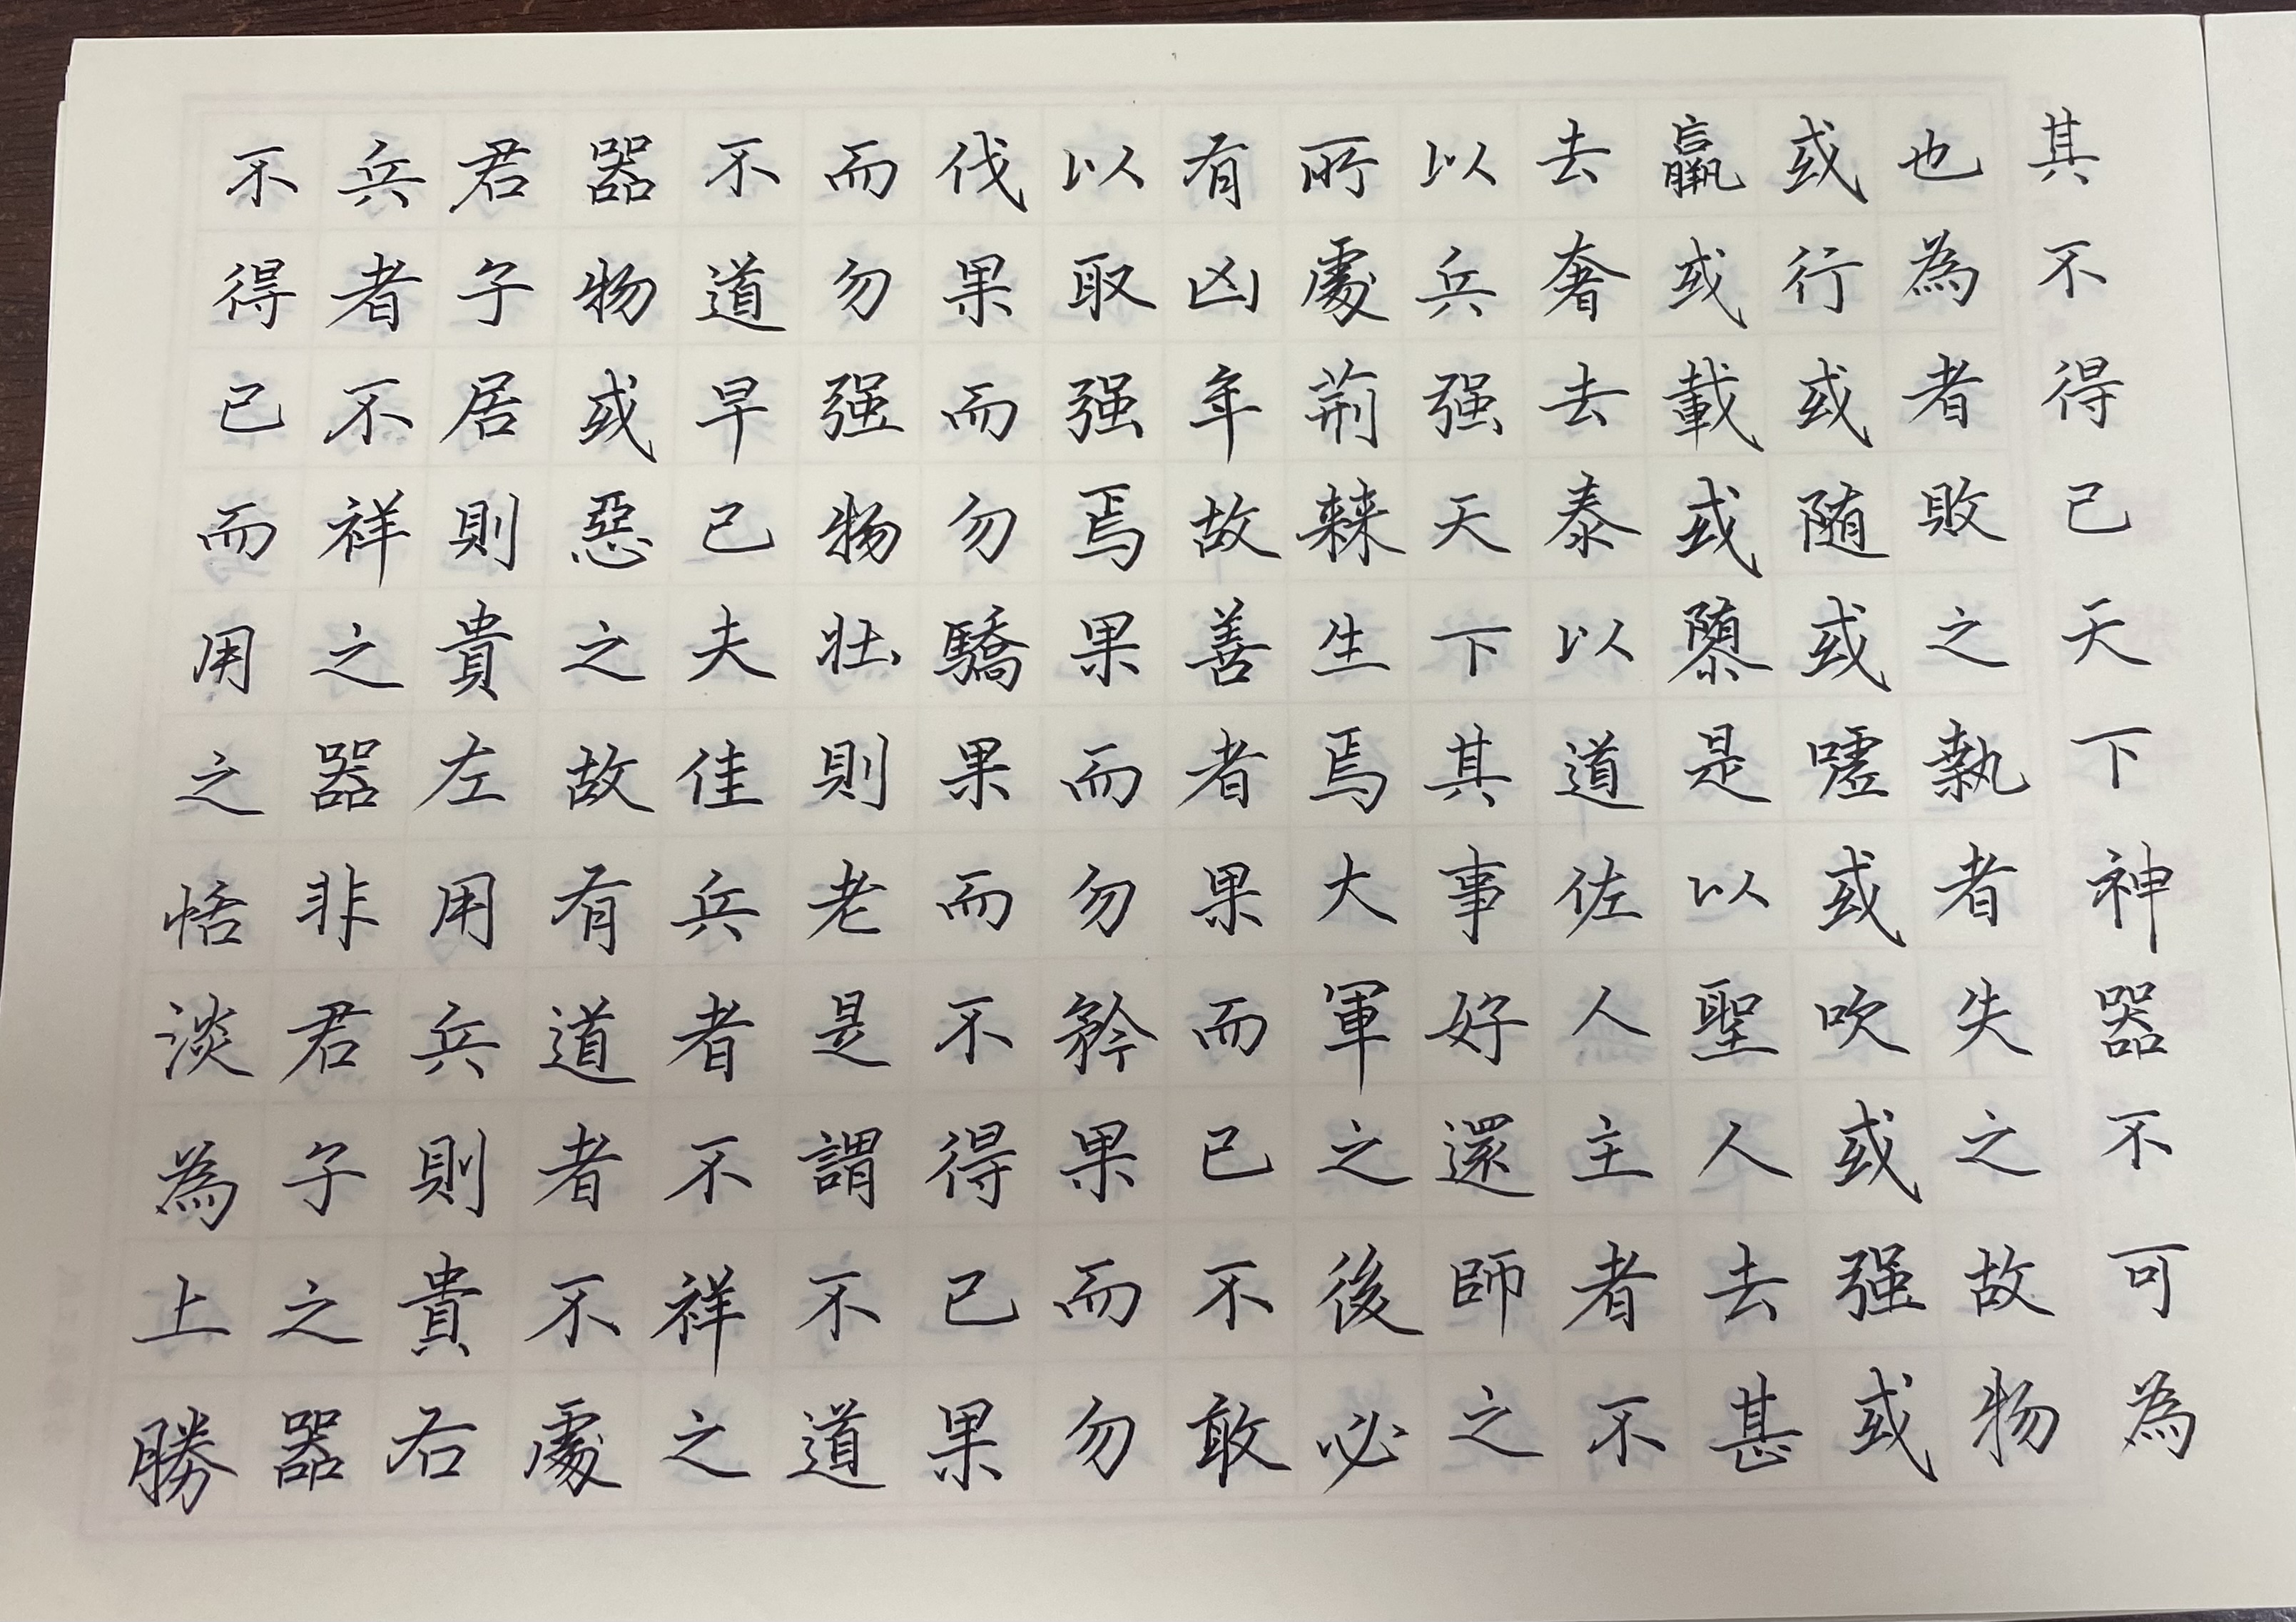 其不得已天下神器不可為
也為者敗之執者失之故物
或行或随或噓或吹或强或
羸或載或隳是以聖人去甚
去奢去泰以道佐人主者不
以兵强天下其事好還師之
所處荊棘生焉大軍之後必
有凶年故善者果而已不敢
以取强焉果而勿矜果而勿
伐果而勿驕果而不得已果
而勿强物壯則老是謂不道
不道早已夫佳兵者不祥之
器物或惡之故有道者不處
君子居則貴左用兵則貴右
兵者不祥之器非君子之器
不得已而用之恬淡為上勝